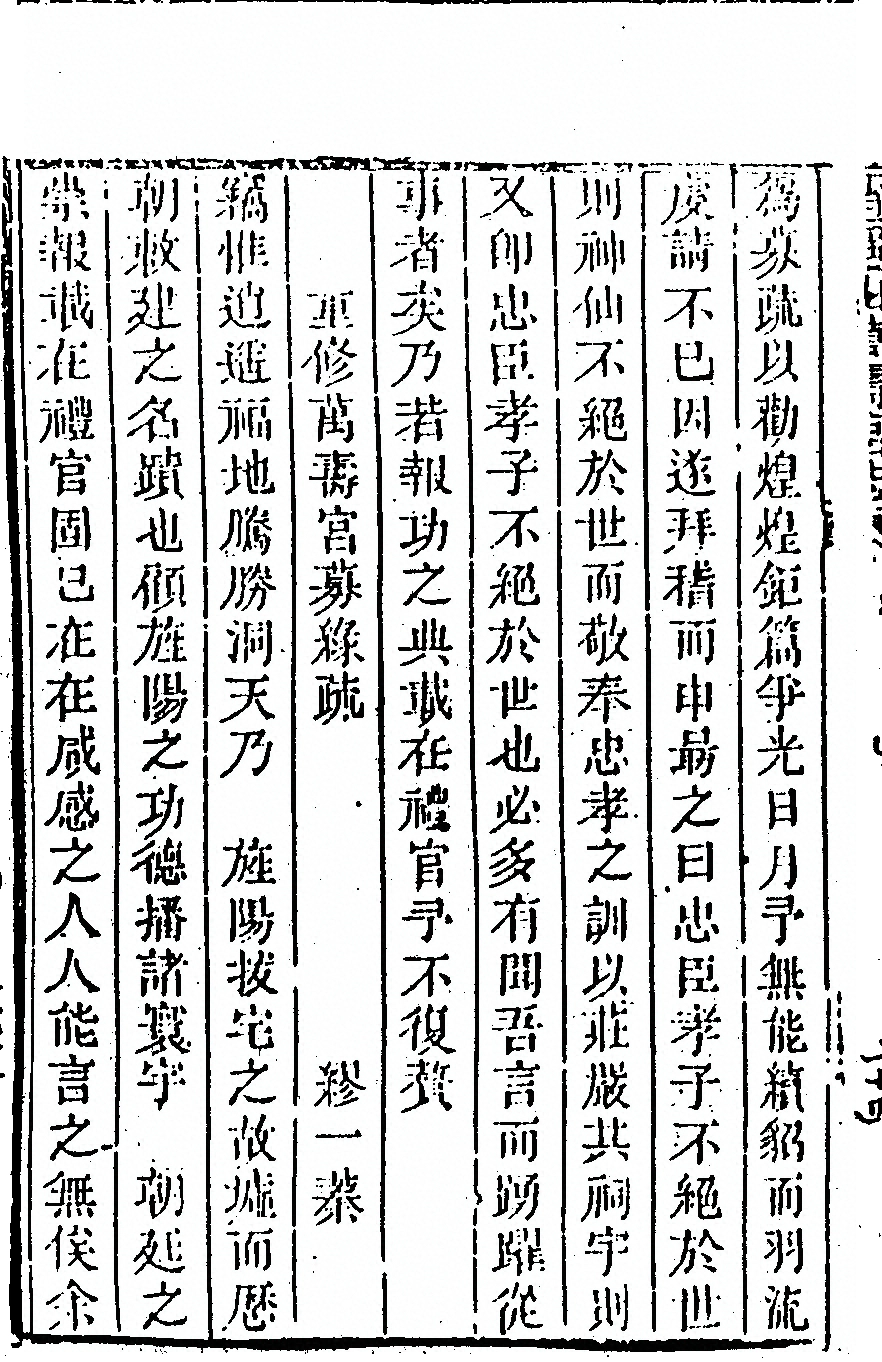 為募疏以勸煌煌鉅篇爭光日月予無能續貂而羽流
虔請不已因遂拜稽而申勗之曰忠臣孝子不絕於世
則神仙不絕於世而敬奉忠孝之訓以莊嚴其祠宇則
又即忠臣孝子不絕於世也必多有聞吾言而踴躍從
事者矣乃若報功之典載在禮官予不復贅
重修萬壽宮募緣疏 繆一榮
竊惟逍遙福地騰勝洞天乃 旌陽拔宅之故墟而歷
朝敕建之名蹟也傾旌陽之功德播諸寰宇 朝廷之
崇報載在禮官固已在在咸感之人人能言之無俟余